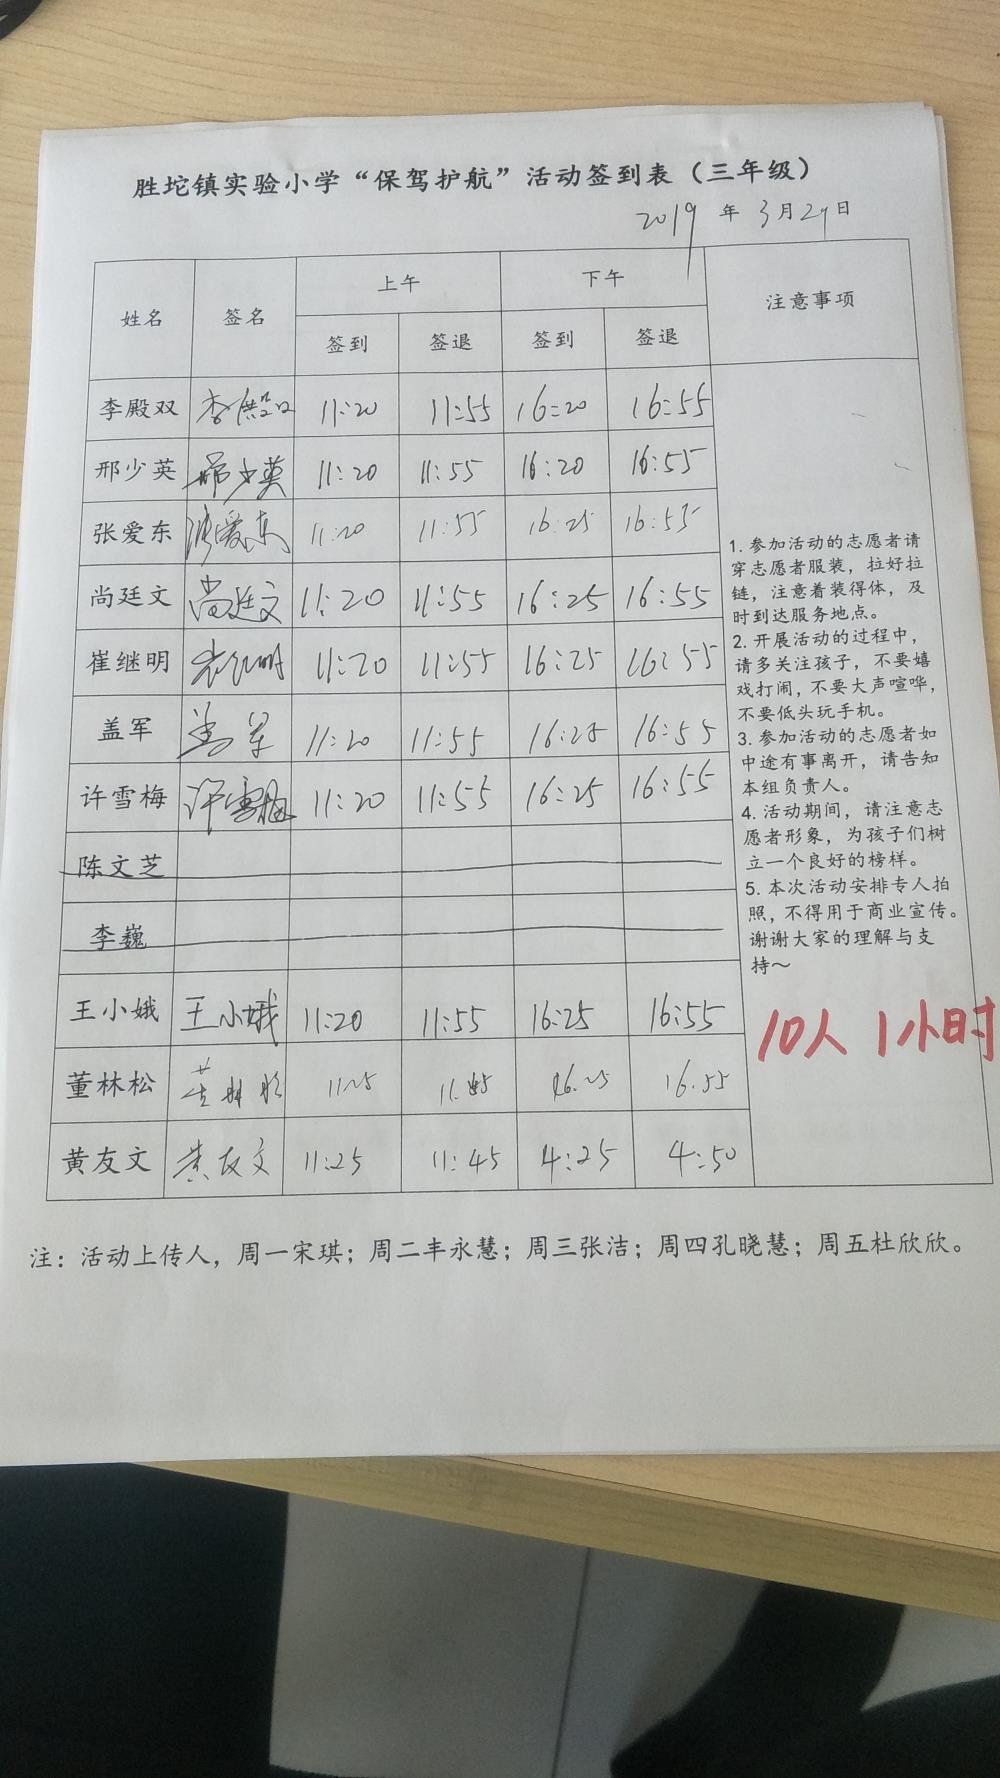 胜坨镇实验小学“保驾护航”活动签到表（三年级）
2019 年 3月29日
姓名 签名 上午 下午 注意事项
签到 签退 签到 签退
李殿双 11:20 11:55 16:20 16:55
邢少英 邢少英 11:20 11:55 16:20 16:55
张爱东 张爱东 11:20 11:55 16:25 16:55
尚廷文 尚廷文 11:20 11:55 16:25 16:55
崔继明 11:20 11:55 16:25 16:55
盖军 盖军 11:20 11:55 16:25 16:55
许雪梅 许雪梅 11:20 11:55 16:25 16:55
陈文芝
李巍
王小娥 王小娥 11:20 11:55 16:25 16:55
董林松 董林松 11:25 16.25 16.55
黄友文 黄友文 11:25 11:45 4:25 4:50
1. 参加活动的志愿者请
穿志愿者服装，拉好拉
链，注意着装得体，及
时到达服务地点。
2. 开展活动的过程中，
请多关注孩子，不要嬉
戏打闹，不要大声喧哗，
不要低头玩手机。
3. 参加活动的志愿者如
中途有事离开，请告知
本组负责人。
4. 活动期间，请注意志
愿者形象，为孩子们树
立一个良好的榜样。
5. 本次活动安排专人拍
照，不得用于商业宣传。
谢谢大家的理解与支
持～
10人 1小时
注：活动上传人，周一宋琪；周二丰永慧；周三张洁；周四孔晓慧；周五杜欣欣。